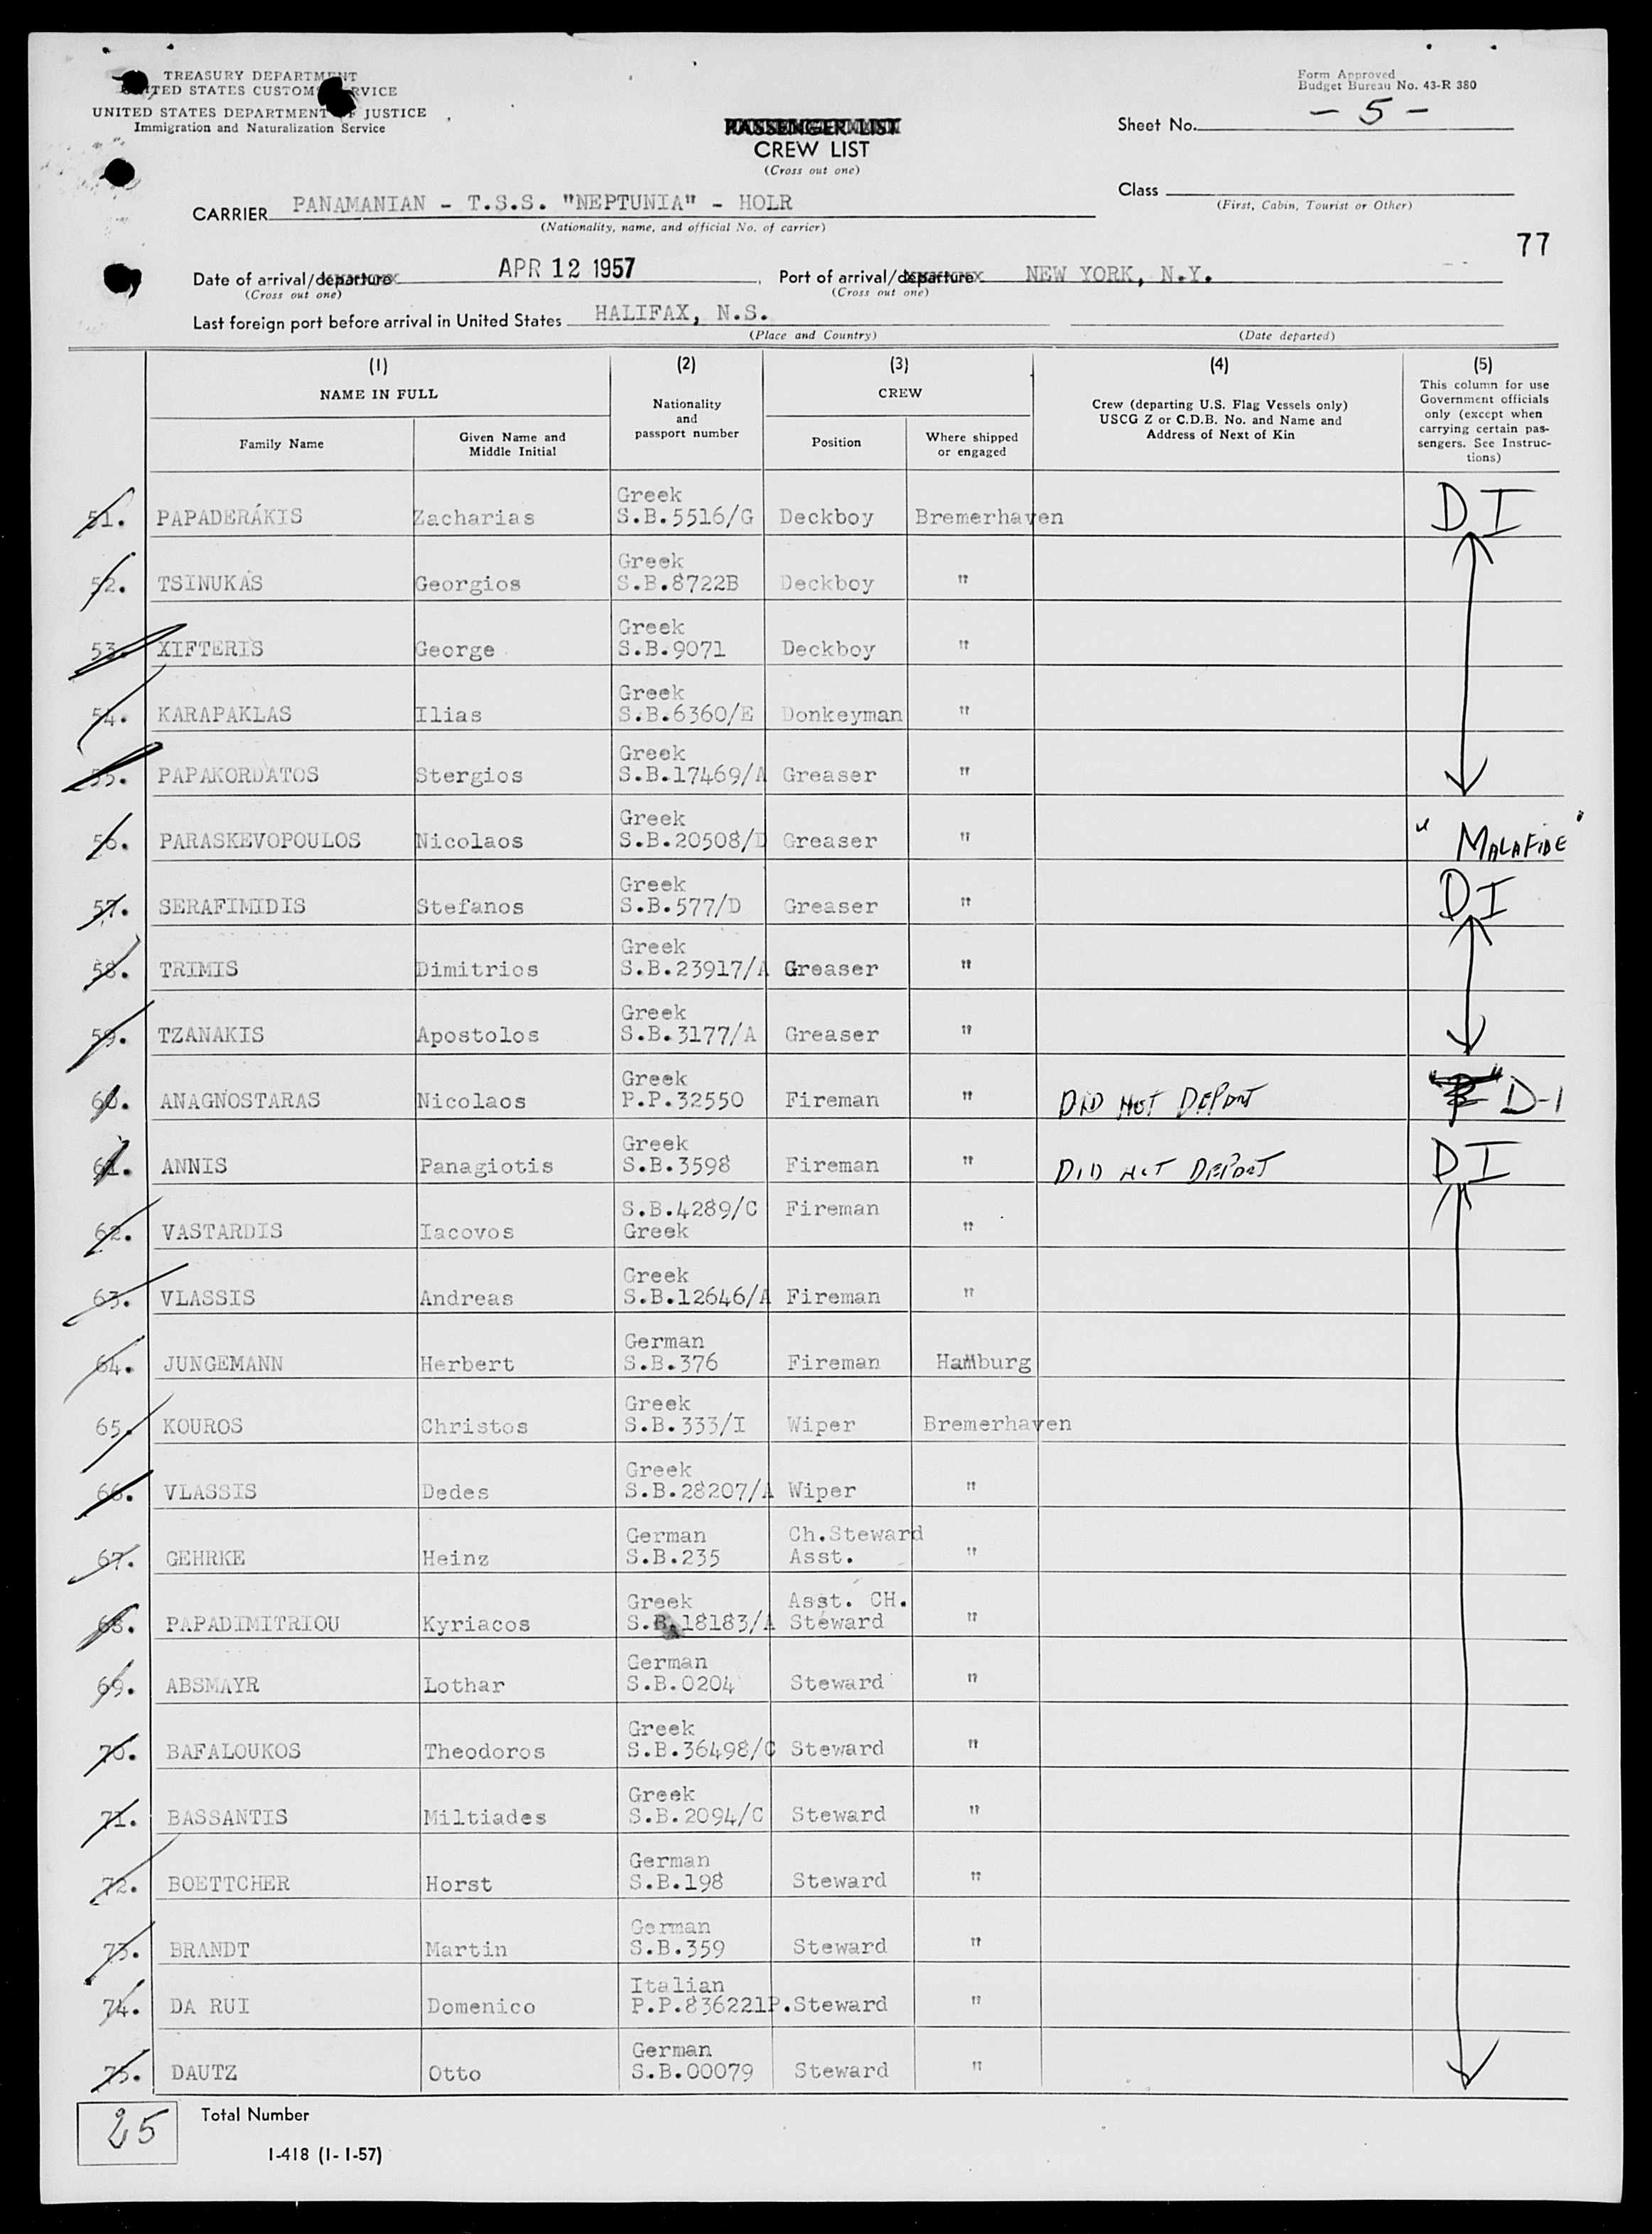 TREASURY DEPARTMENT
UNITED STATES CUSTOMS SERVICE
UNITED STATES DEPARTMENT OF JUSTICE
Immigration and Naturalization Service
Form Approved
Budget Bureau No. 43-R 380
PASSENGER LIST
CREW LIST
(Cross out one)
Sheet No. - 5 -
Class
(First, Cabin, Tourist or Other)
CARRIER PANAMANIAN - T.S.S. "NEPTUNIA" - HOLR
(Nationality, name, and official No. of carrier)
77
Date of arrival/departure APR 12 1957 Port of arrival/departure NEW YORK, N.Y.
(Cross out one) (Cross out one)
Last foreign port before arrival in United States HALIFAX, N.S.
(Place and Country) (Date departed)
(1) (2) (3) (4) (5)
NAME IN FULL
Family Name
Given Name and Middle Initial
Nationality and passport number
CREW
Position
Where shipped or engaged
Crew (departing U.S. Flag Vessels only)
USCG Z or C.D.B. No. and Name and
Address of Next of Kin
This column for use
Government officials
only (except when
carrying certain pas-
sengers. See Instruc-
tions)
Greek
51. PAPADERÁKIS Zacharias S.B.5516/G Deckboy Bremerhaven D I
Greek
52. TSINUKAS Georgios S.B.8722B Deckboy "
Greek
53. XIFTERIS George S.B.9071 Deckboy "
Greek
54. KARAPAKLAS Ilias S.B.6360/E Donkeyman "
Greek
55. PAPAKORDATOS Stergios S.B.17469/A Greaser "
Greek
56. PARASKEVOPOULOS Nicolaos S.B.20508/D Greaser " "MALAFIDE"
Greek
57. SERAFIMIDIS Stefanos S.B.577/D Greaser " D I
Greek
58. TRIMIS Dimitrios S.B.23917/A Greaser "
Greek
59. TZANAKIS Apostolos S.B.3177/A Greaser "
Greek
60. ANAGNOSTARAS Nicolaos P.P.32550 Fireman " DID NOT DEPART D-1
Greek
61. ANNIS Panagiotis S.B.3598 Fireman " DID NOT DEPART D I
S.B.4289/C Fireman
62. VASTARDIS Iacovos Greek "
Greek
63. VLASSIS Andreas S.B.12646/A Fireman "
German
64. JUNGEMANN Herbert S.B.376 Fireman Hamburg
Greek
65. KOUROS Christos S.B.333/I Wiper Bremerhaven
Greek
66. VLASSIS Dedes S.B.28207/A Wiper "
German Ch.Steward
67. GEHRKE Heinz S.B.235 Asst. "
Greek Asst. CH.
68. PAPADIMITRIOU Kyriacos S.B.18183/A Steward "
German
69. ABSMAYR Lothar S.B.0204 Steward "
Greek
70. BAFALOUKOS Theodoros S.B.36498/C Steward "
Greek
71. BASSANTIS Miltiades S.B.2094/C Steward "
German
72. BOETTCHER Horst S.B.198 Steward "
German
73. BRANDT Martin S.B.359 Steward "
Italian
74. DA RUI Domenico P.P.836221P. Steward "
German
75. DAUTZ Otto S.B.00079 Steward "
25 Total Number
I-418 (1-1-57)